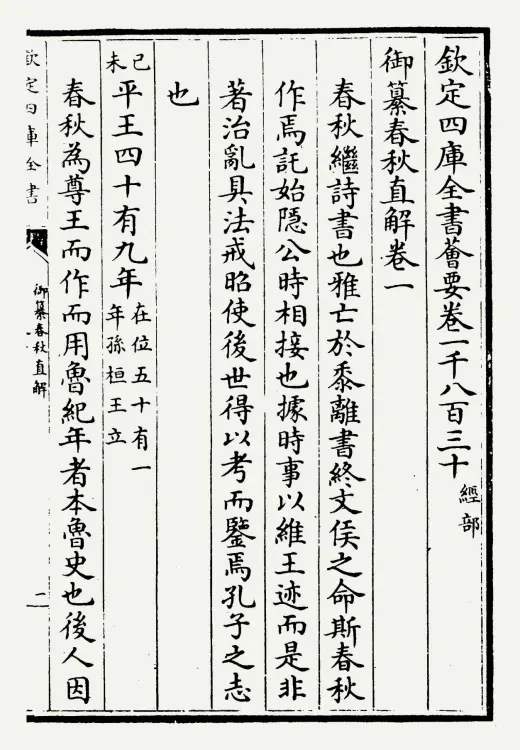 欽定四庫全書薈要卷一千八百三十 經部
御纂春秋直解卷一
春秋繼詩書也雅亡於黍離書終文侯之命斯春秋
作焉託始隱公時相接也據時事以維王迹而是非
著治亂具法戒昭使後世得以考而鑒焉孔子之志
也
己未平王四十有九年在位五十有一年孫桓王立
春秋為尊王而作而用魯紀年者本魯史也後人因
欽定四庫全書
御纂春秋直解
二